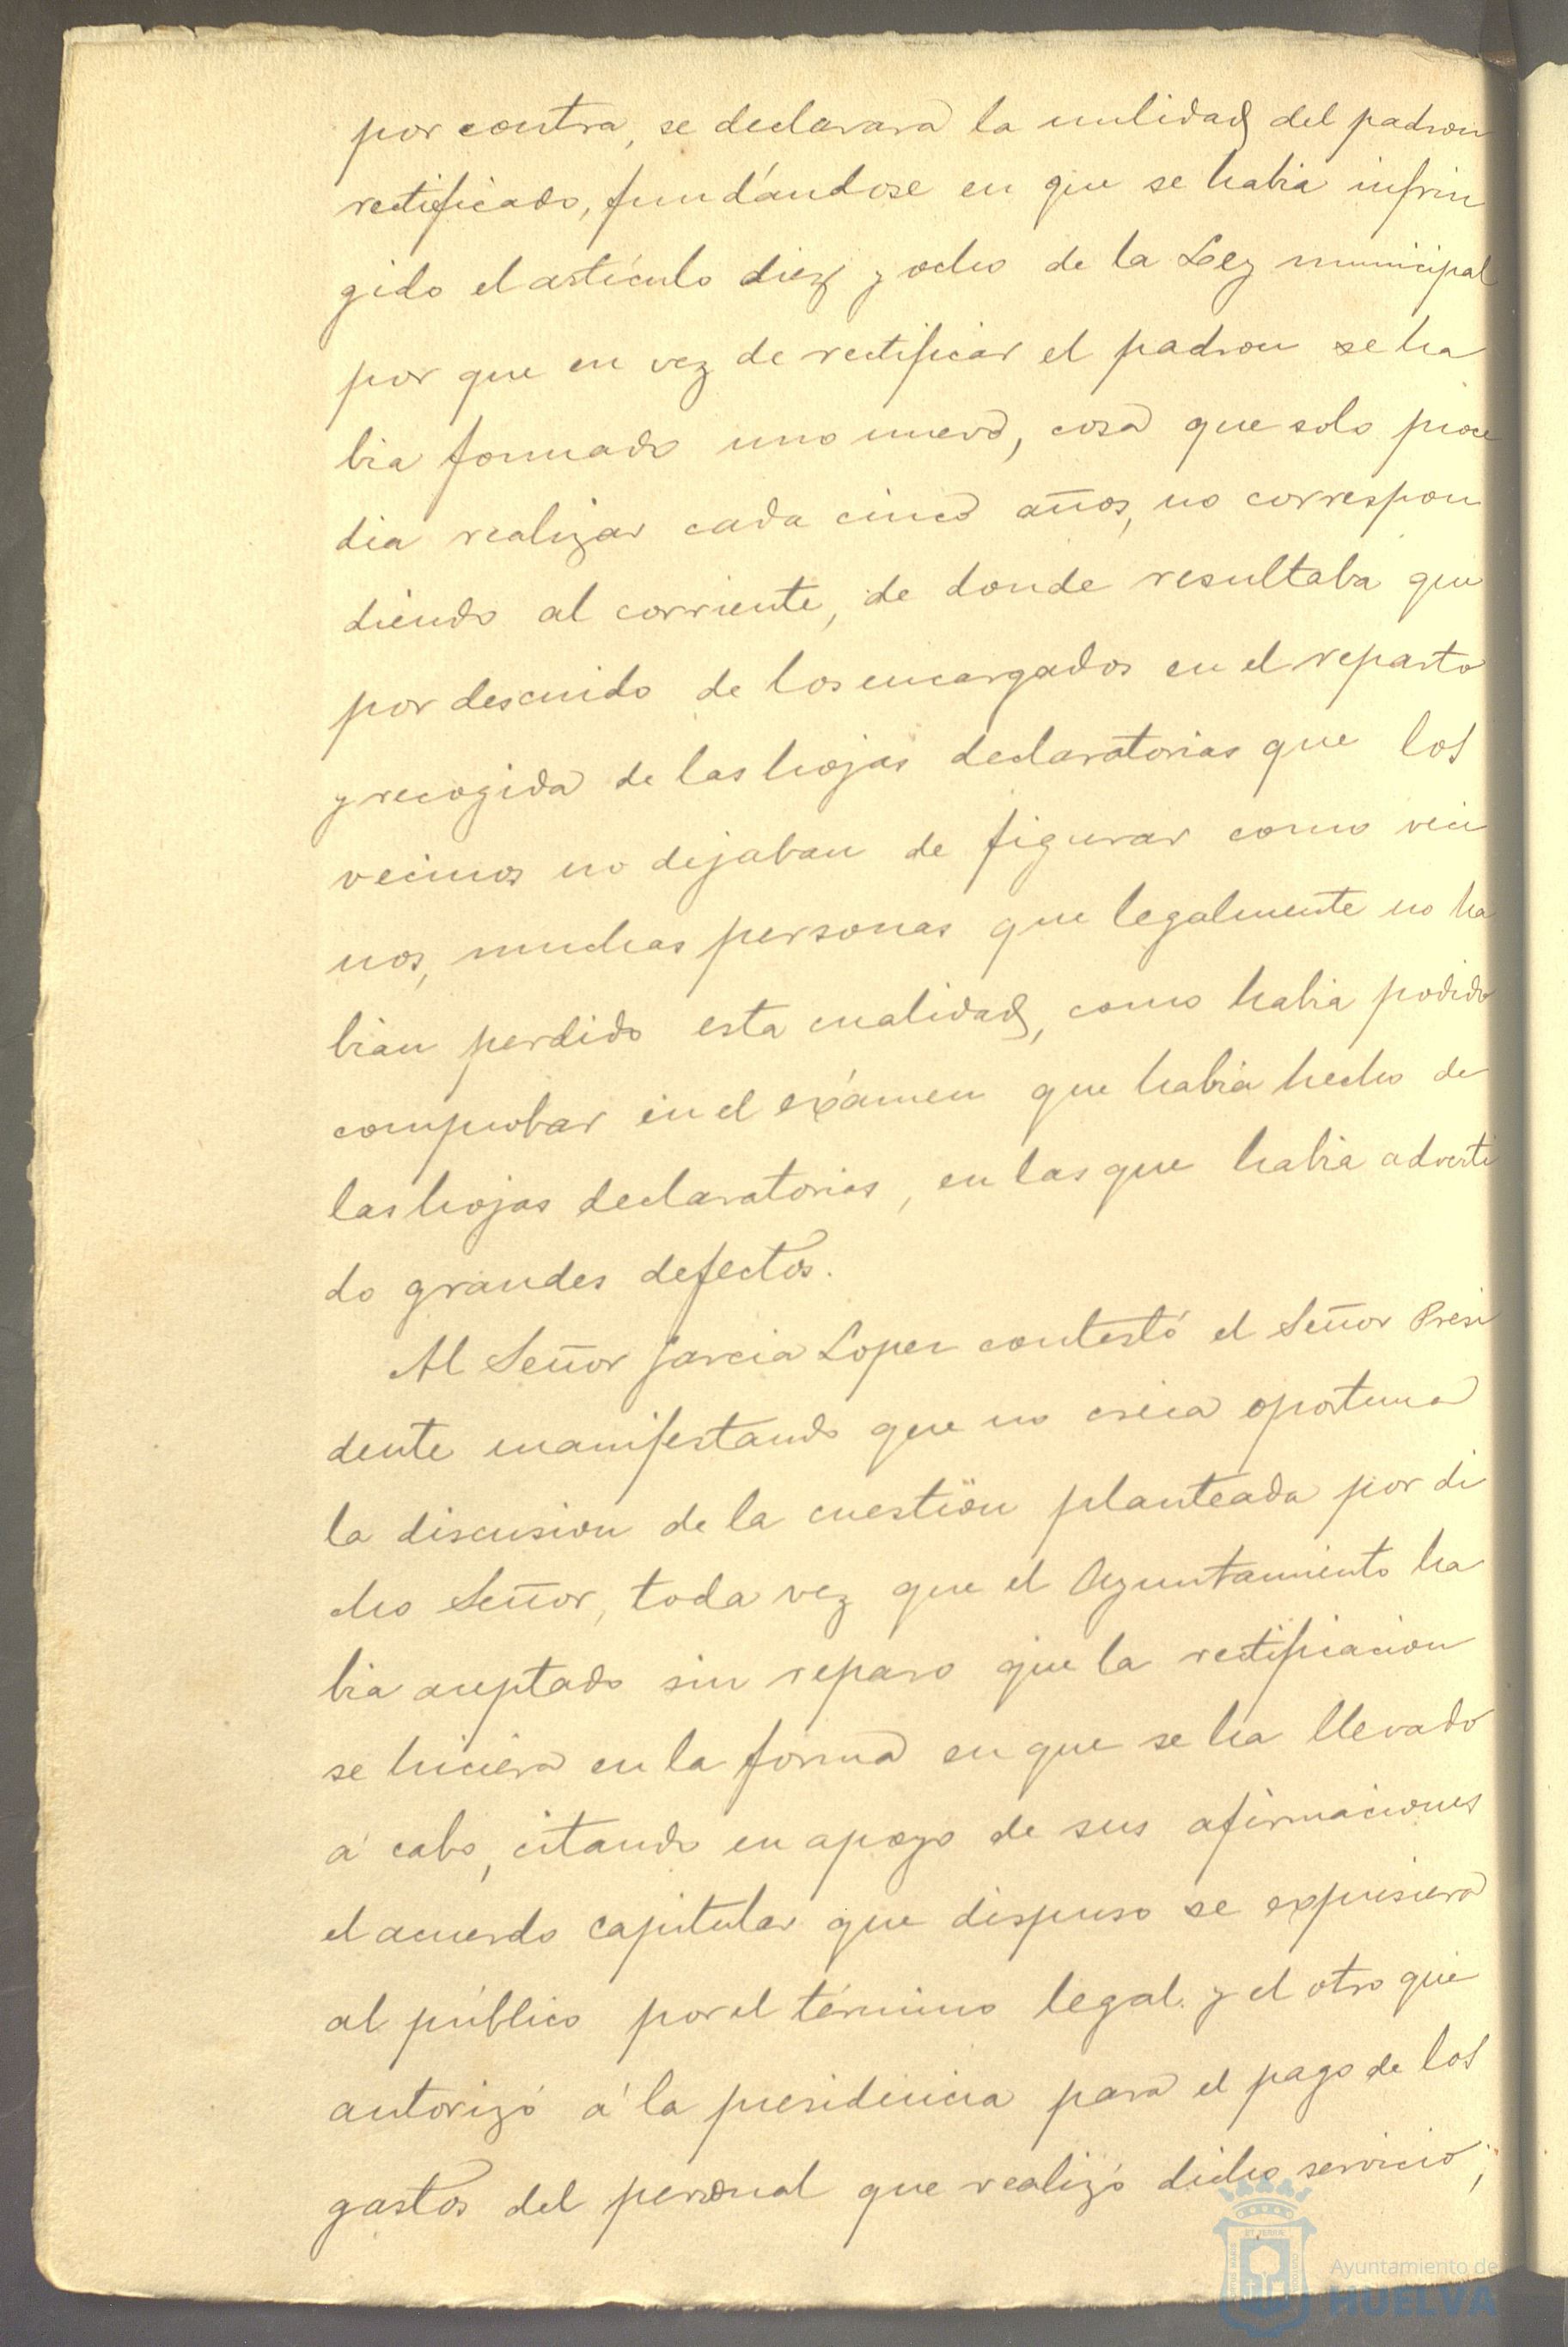 por contra, se declarara la nulidad del padron
rectificado, fundándose en que se habia infrin
gido el artículo diez y ocho de la Ley municipal
por que en vez de rectificar el padron se ha
bia formado uno nuevo, cosa que solo proce
dia realizar cada cinco años, no correspon
diendo al corriente, de donde resultaba que
por descuido de los encargados en el reparto
y recogida de las hojas declaratorias que los
vecinos no dejaban de figurar como veci
nos, muchas personas que legalmente no ha
bian perdido esta cualidad, como habia podido
comprobar en el exámen que habia hecho de
las hojas declaratorias, en las que habia adverti
do grandes defectos.
Al Señor Garcia Lopez contestó el Señor Presi
dente manifestando que no creia oportuna
la discusion de la cuestion planteada por di
cho Señor, toda vez que el Ayuntamiento ha
bia aceptado sin reparo que la rectificacion
se hiciera en la forma en que se ha llevado
á cabo, citando en apoyo de sus afirmaciones
el acuerdo capitular que dispuso se expusiera
al público por el término legal y el otro que
autorizó á la presidencia para el pago de los
gastos del personal que realizó dicho servicio;
Ayuntamiento de
HUELVA